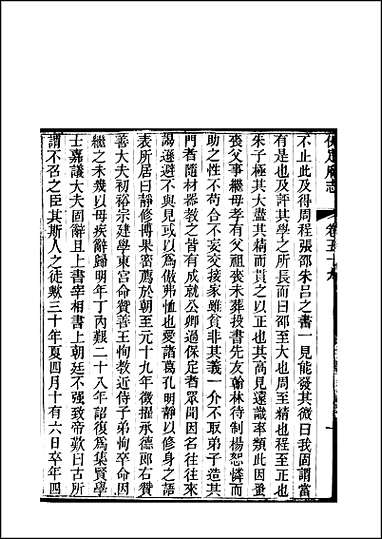 保定府志 卷五十九
不止此及得周程張邵朱呂之書一見能發其微曰我固謂當
有是也及評其學之所長而曰邵至大也周至精也程至正也
朱子極其大盡其精而貫之以正也其高見遠識率類此因蚤
喪父事繼母孝有父祖喪未葬投書先友翰林待制楊恕憐而
助之性不苟合不妄交接家雖貧非其義一介不取弟子造其
門者隨材器教之皆有成就公卿過保定者眾聞因名往往來
謁遜避不與見或以爲傲弗恤也愛諸葛孔明靜以修身之語
表所居曰靜修博果密薦於朝至元十九年徵擢承德郎右贊
善大夫初裕宗建學東宮命贊善王恂教近侍子弟恂卒命因
繼之未幾以母疾辭歸明年丁內艱二十八年詔復爲集賢學
士嘉議大夫固辭且上書宰相書上朝廷不强致帝歎曰古所
謂不召之臣其斯人之徒歟三十年夏四月十有六日卒年四